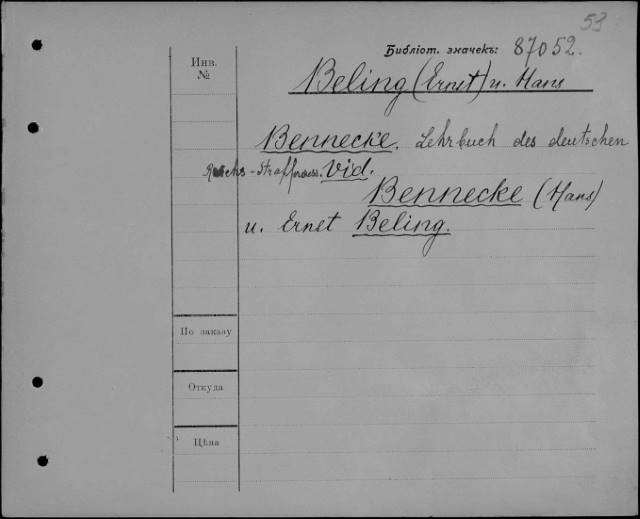 53
Библіот. значекъ: 87052.
Инв.
№
Beling (Ernet) u. Hans
Bennecke. Lehrbuch des deutschen
Reichs-Strafprocess. Vid.
Bennecke (Hans)
u. Ernet Beling.
По заказу
Откуда
Цѣна